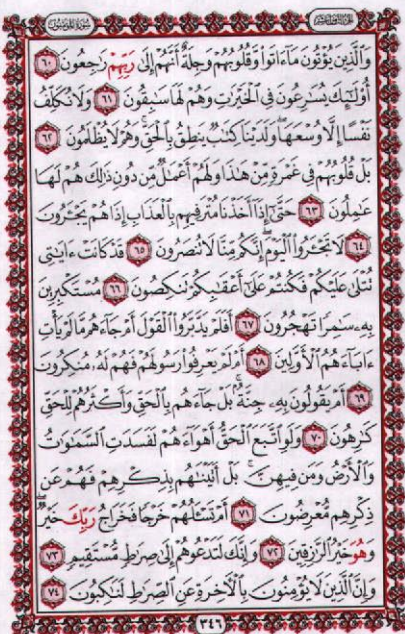 الجزء الثامن عشر
سورة المؤمنون
وَالَّذِينَ يُؤْتُونَ مَا ءَاتَوا وَّقُلُوبُهُمْ وَجِلَةٌ أَنَّهُمْ إِلَىٰ رَبِّهِمْ رَٰجِعُونَ ٦٠
أُو۟لَٰٓئِكَ يُسَٰرِعُونَ فِي الْخَيْرَٰتِ وَهُمْ لَهَا سَٰبِقُونَ ٦١ وَلَا نُكَلِّفُ
نَفْسًا إِلَّا وُسْعَهَا وَلَدَيْنَا كِتَٰبٌ يَنطِقُ بِالْحَقِّ وَهُمْ لَا يُظْلَمُونَ ٦٢
بَلْ قُلُوبُهُمْ فِي غَمْرَةٍ مِّنْ هَٰذَا وَلَهُمْ أَعْمَٰلٌ مِّن دُونِ ذَٰلِكَ هُمْ لَهَا
عَٰمِلُونَ ٦٣ حَتَّىٰٓ إِذَآ أَخَذْنَا مُتْرَفِيهِم بِالْعَذَابِ إِذَا هُمْ يَجْـَٔرُونَ
٦٤ لَا تَجْـَٔرُوا الْيَوْمَ إِنَّكُم مِّنَّا لَا تُنصَرُونَ ٦٥ قَدْ كَانَتْ ءَايَٰتِي
تُتْلَىٰ عَلَيْكُمْ فَكُنتُمْ عَلَىٰٓ أَعْقَٰبِكُمْ تَنكِصُونَ ٦٦ مُسْتَكْبِرِينَ
بِهِۦ سَٰمِرًا تَهْجُرُونَ ٦٧ أَفَلَمْ يَدَّبَّرُوا الْقَوْلَ أَمْ جَآءَهُم مَّا لَمْ يَأْتِ
ءَابَآءَهُمُ الْأَوَّلِينَ ٦٨ أَمْ لَمْ يَعْرِفُوا رَسُولَهُمْ فَهُمْ لَهُۥ مُنكِرُونَ
٦٩ أَمْ يَقُولُونَ بِهِۦ جِنَّةٌ بَلْ جَآءَهُم بِالْحَقِّ وَأَكْثَرُهُمْ لِلْحَقِّ
كَٰرِهُونَ ٧٠ وَلَوِ اتَّبَعَ الْحَقُّ أَهْوَآءَهُمْ لَفَسَدَتِ السَّمَٰوَٰتُ
وَالْأَرْضُ وَمَن فِيهِنَّ بَلْ أَتَيْنَٰهُم بِذِكْرِهِمْ فَهُمْ عَن
ذِكْرِهِم مُّعْرِضُونَ ٧١ أَمْ تَسْـَٔلُهُمْ خَرْجًا فَخَرَاجُ رَبِّكَ خَيْرٌ
وَهُوَ خَيْرُ الرَّٰزِقِينَ ٧٢ وَإِنَّكَ لَتَدْعُوهُمْ إِلَىٰ صِرَٰطٍ مُّسْتَقِيمٍ ٧٣
وَإِنَّ الَّذِينَ لَا يُؤْمِنُونَ بِالْءَاخِرَةِ عَنِ الصِّرَٰطِ لَنَٰكِبُونَ ٧٤
٣٤٦